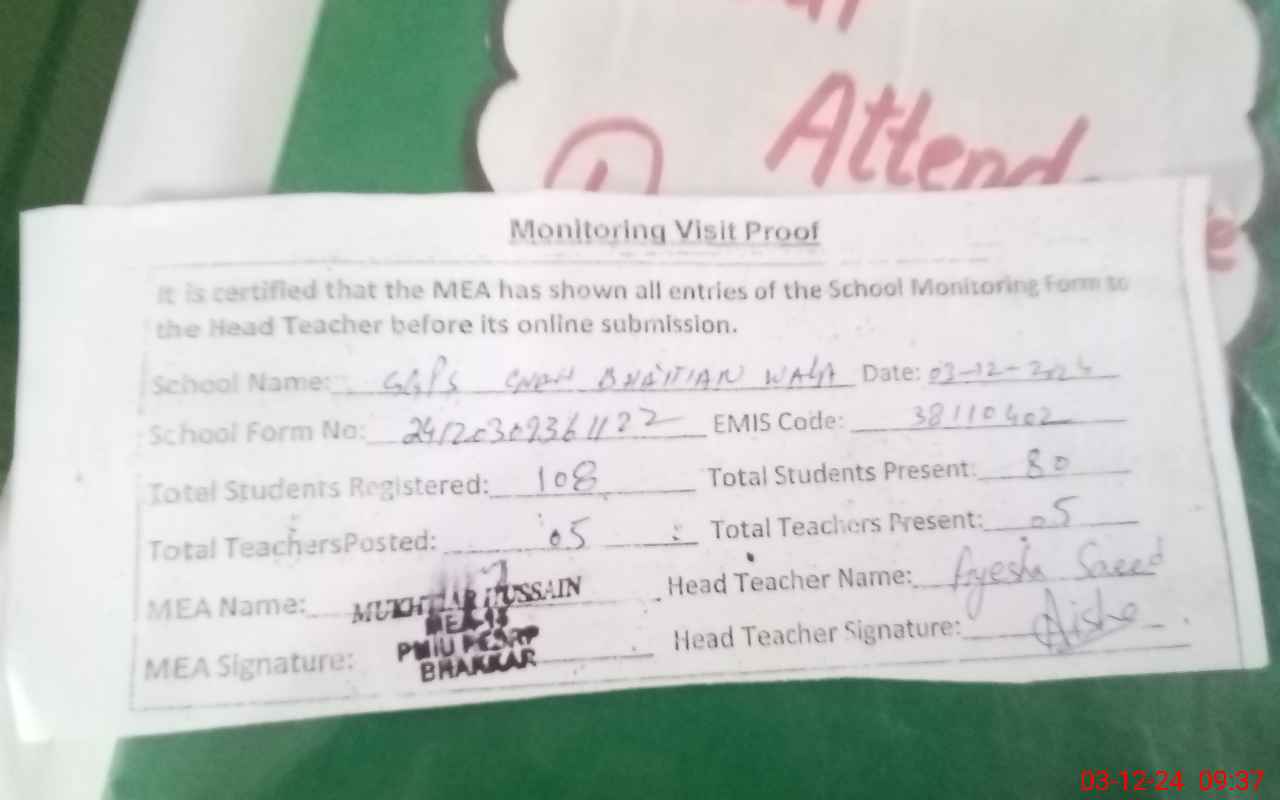 Attend
1
Monitoring Visit Proof
It is certified that the MEA has shown all entries of the School Monitoring Form to
the Head Teacher before its online submission.
School Name: GGPS CHAH BHATIAN WALA Date: 03-12-2024
School Form No: EMIS Code: 38110402
Total Students Registered: 108 Total Students Present: 80
Total TeachersPosted: 05 Total Teachers Present: 05
MEA Name: MUKHTIAR HUSSAIN Head Teacher Name: Ayesha Saeed
MEA-13
PMIU PESRP
MEA Signature: BHAKKAR Head Teacher Signature: Aisha
03-12-24 09:37